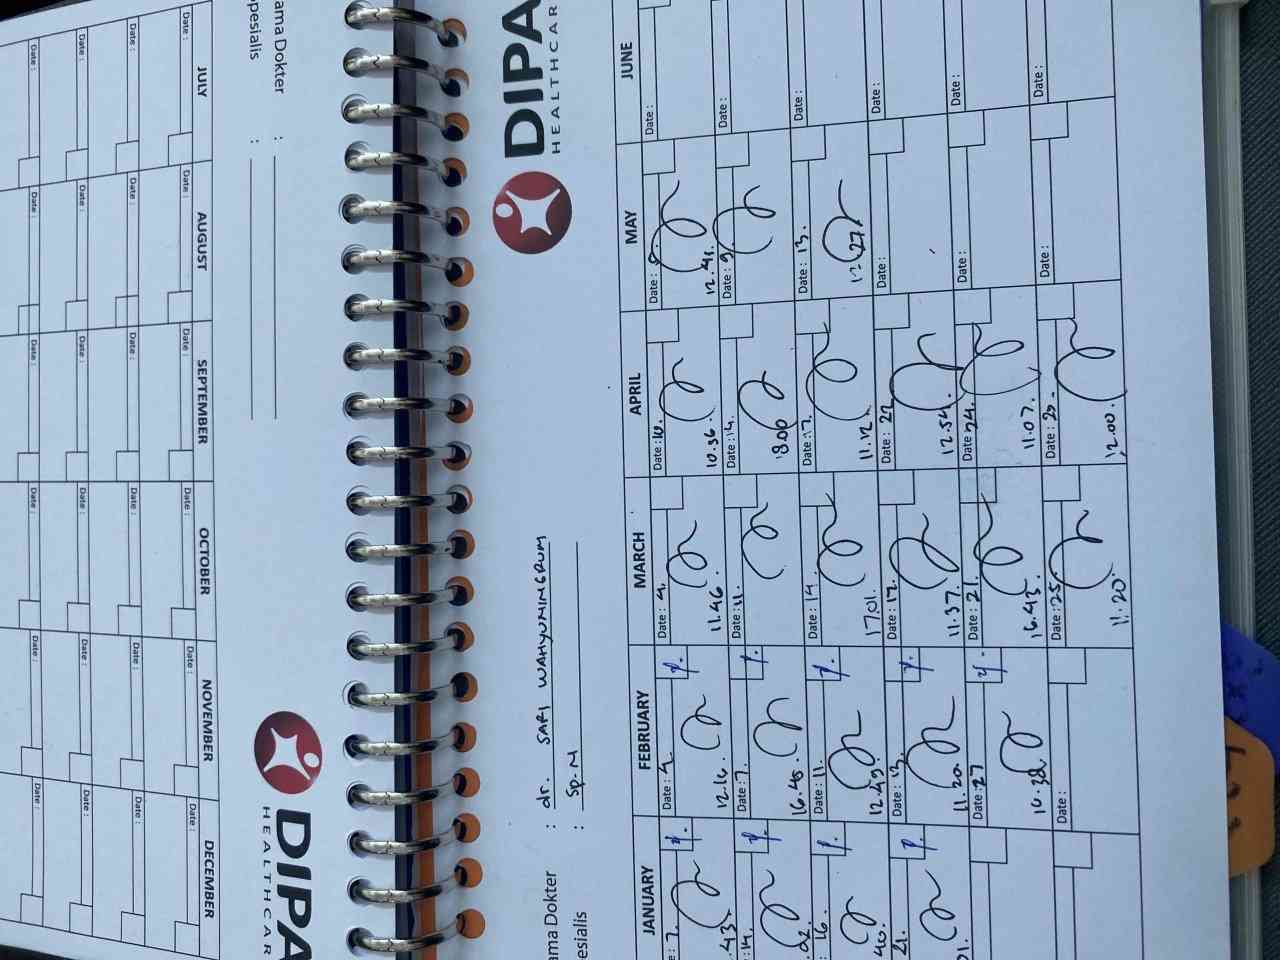 DIPA
HEALTHCAR
ama Dokter : dr. SARI WAHYUNINGRUM
esialis : Sp.M
JANUARY FEBRUARY MARCH APRIL MAY JUNE
e: 7. Date: 4. Date: 4. Date: 10. Date: Date:
.43 12.16. 11.46. 10.36. 12.41.
14. Date: 7. Date: 11. Date: 14. Date: 9. Date:
.02. 16.48. 18.00
16. Date: 11. Date: 14. Date: 17. Date: 13. Date:
40. 12.49. 17.01. 11.12. 12.27
21. Date: 13. Date: 17. Date: 22 Date: Date:
01. 11.20. 11.37. 12.54.
Date: 27 Date: 21. Date: 24. Date: Date:
16.38. 16.43. 11.07.
Date: Date: 25. Date: Date: Date:
11.20. 12.00.
DIPA
HEALTHCAR
ama Dokter :
pesialis :
JULY AUGUST SEPTEMBER OCTOBER NOVEMBER DECEMBER
Date: Date: Date: Date: Date: Date:
Date: Date: Date: Date: Date: Date:
Date: Date: Date: Date: Date: Date:
Date: Date: Date: Date: Date: Date: